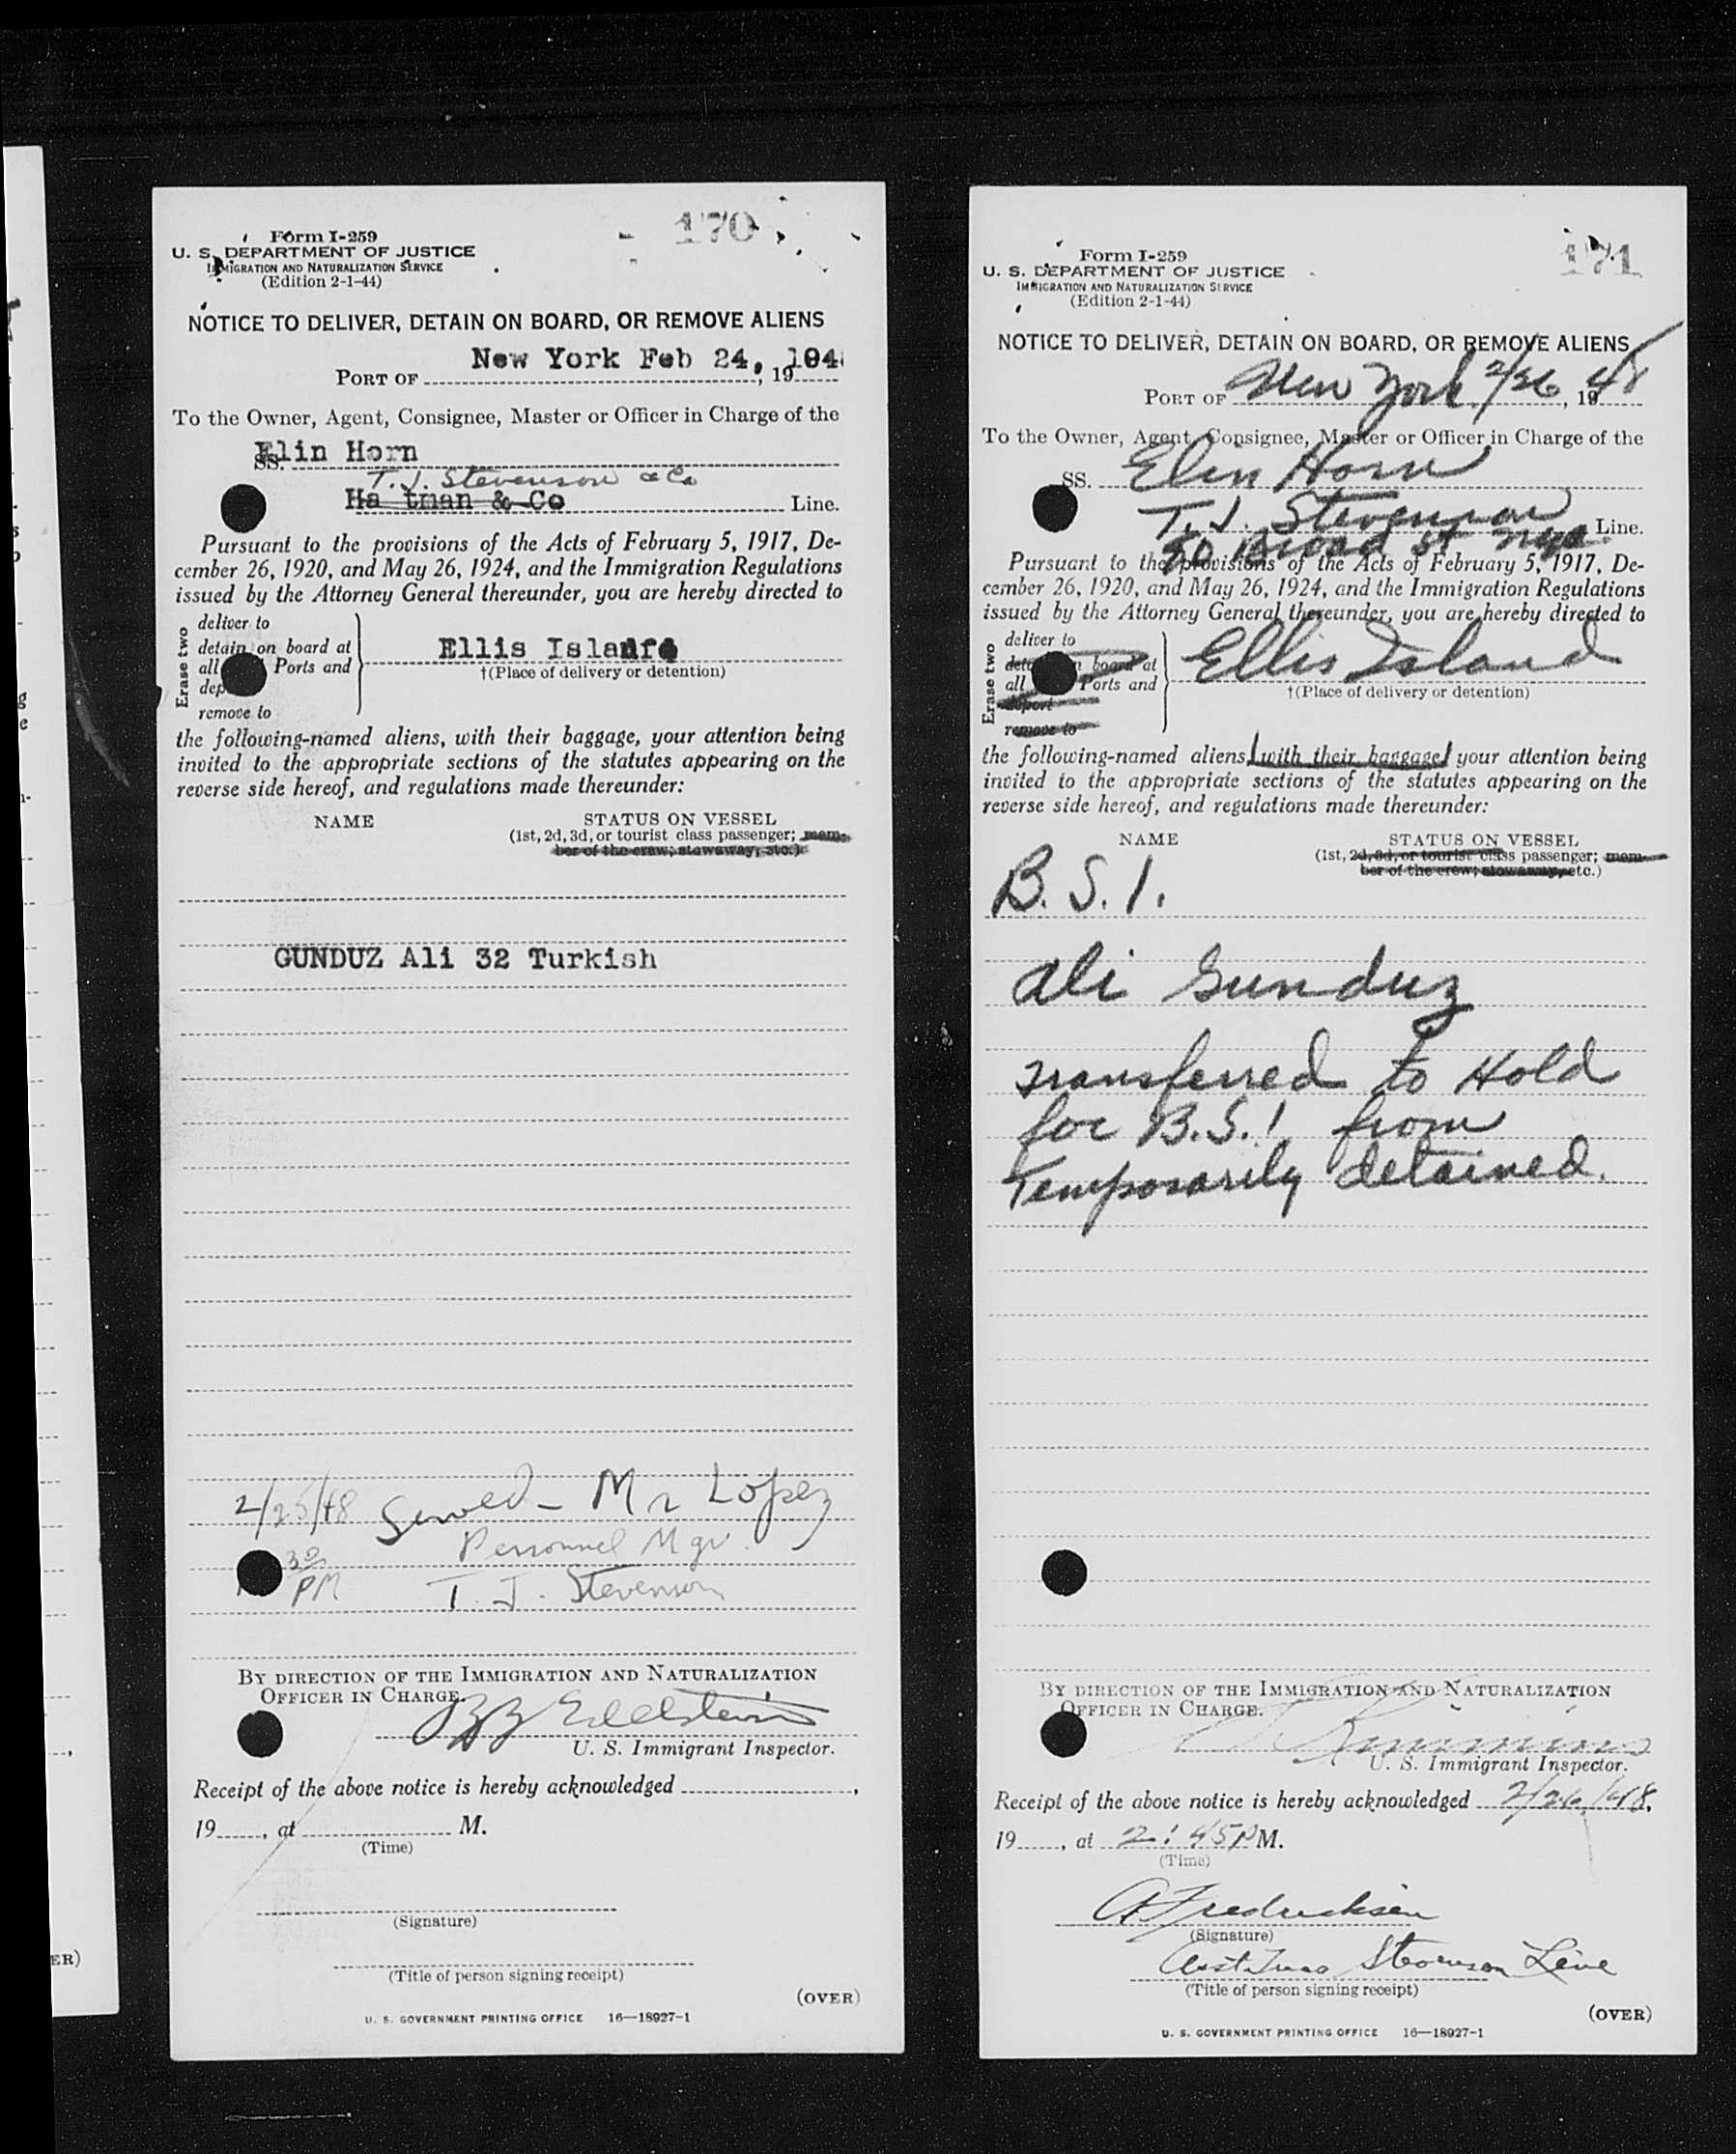 170
Form I-259
U. S. DEPARTMENT OF JUSTICE
IMMIGRATION AND NATURALIZATION SERVICE
(Edition 2-1-44)
NOTICE TO DELIVER, DETAIN ON BOARD, OR REMOVE ALIENS
PORT OF New York Feb 24, 194 , 19
To the Owner, Agent, Consignee, Master or Officer in Charge of the
SS. Elin Horn
T. J. Stevenson & Co
Ha tman & Co Line.
Pursuant to the provisions of the Acts of February 5, 1917, De-
cember 26, 1920, and May 26, 1924, and the Immigration Regulations
issued by the Attorney General thereunder, you are hereby directed to
Erase two
deliver to
detain on board at
all Ports and
dep
remove to
Ellis Island
†(Place of delivery or detention)
the following-named aliens, with their baggage, your attention being
invited to the appropriate sections of the statutes appearing on the
reverse side hereof, and regulations made thereunder:
NAME STATUS ON VESSEL
(1st, 2d, 3d, or tourist class passenger; mem-
ber of the crew; stowaway, etc.)
GUNDUZ Ali 32 Turkish
2/25/48 Served - Mr Lopez
Personnel Mgr.
3 30 PM T. J. Stevenson
BY DIRECTION OF THE IMMIGRATION AND NATURALIZATION
OFFICER IN CHARGE.
Edelstein
U. S. Immigrant Inspector.
Receipt of the above notice is hereby acknowledged ,
19 , at M.
(Time)
(Signature)
(Title of person signing receipt)
(OVER)
U. S. GOVERNMENT PRINTING OFFICE 16—18927-1
171
Form I-259
U. S. DEPARTMENT OF JUSTICE
IMMIGRATION AND NATURALIZATION SERVICE
(Edition 2-1-44)
NOTICE TO DELIVER, DETAIN ON BOARD, OR REMOVE ALIENS
PORT OF New York 2/26, 1948
To the Owner, Agent, Consignee, Master or Officer in Charge of the
SS. Elin Horn
T. J. Stevenson Line.
80 Broad St NYC
Pursuant to the provisions of the Acts of February 5, 1917, De-
cember 26, 1920, and May 26, 1924, and the Immigration Regulations
issued by the Attorney General thereunder, you are hereby directed to
Erase two
deliver to
detain on board at
all Ports and
deport
remove to
Ellis Island
†(Place of delivery or detention)
the following-named aliens, with their baggage, your attention being
invited to the appropriate sections of the statutes appearing on the
reverse side hereof, and regulations made thereunder:
NAME STATUS ON VESSEL
(1st, 2d, 3d, or tourist class passenger; mem-
ber of the crew; stowaway, etc.)
B. S. I.
Ali Gunduz
Transferred to Hold
for B.S.I. from
Temporarily detained.
BY DIRECTION OF THE IMMIGRATION AND NATURALIZATION
OFFICER IN CHARGE.
U. S. Immigrant Inspector.
Receipt of the above notice is hereby acknowledged 2/26/48,
19 , at 2:45 P M.
(Time)
A Fredricksen
(Signature)
Stevenson Line
(Title of person signing receipt)
(OVER)
U. S. GOVERNMENT PRINTING OFFICE 16—18927-1
ER)